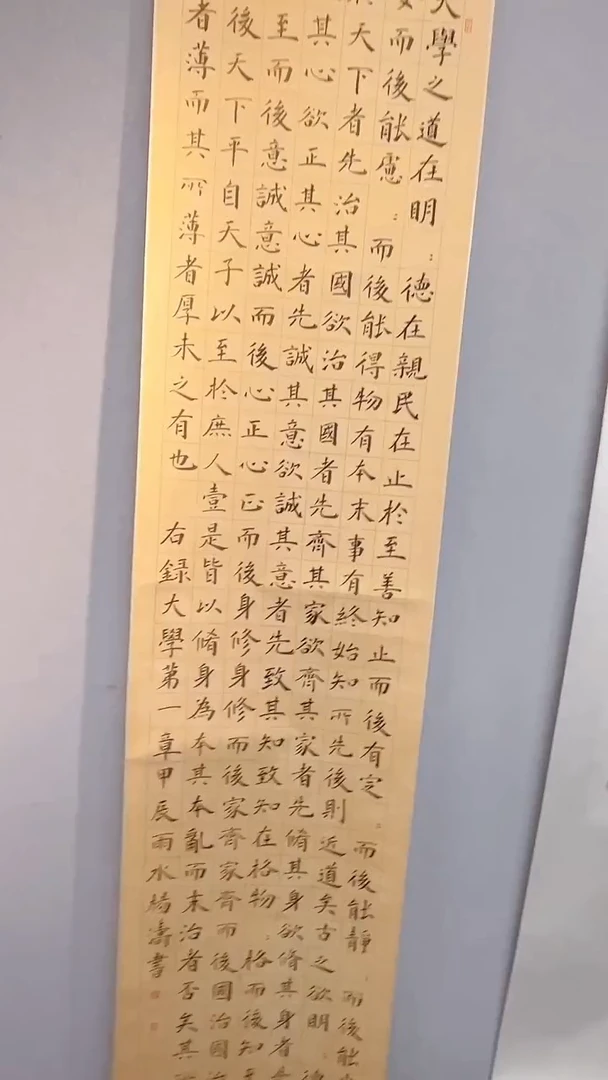 大學之道在明：德在親民在止於至善知止而後有定：而後能靜：而後能
而後能慮：而後能得物有本末事有終始知所先後則近道矣古之欲明：德
天下者先治其國欲治其國者先齊其家欲齊其家者先脩其身欲脩其身者
其心欲正其心者先誠其意欲誠其意者先致其知致知在格物：格而後知至
至而後意誠意誠而後心正心正而後身修身修而後家齊家齊而後國治國治
後天下平自天子以至於庶人壹是皆以脩身為本其本亂而末治者否矣其
者薄而其所薄者厚未之有也 右録大學第一章甲辰雨水楊濤書